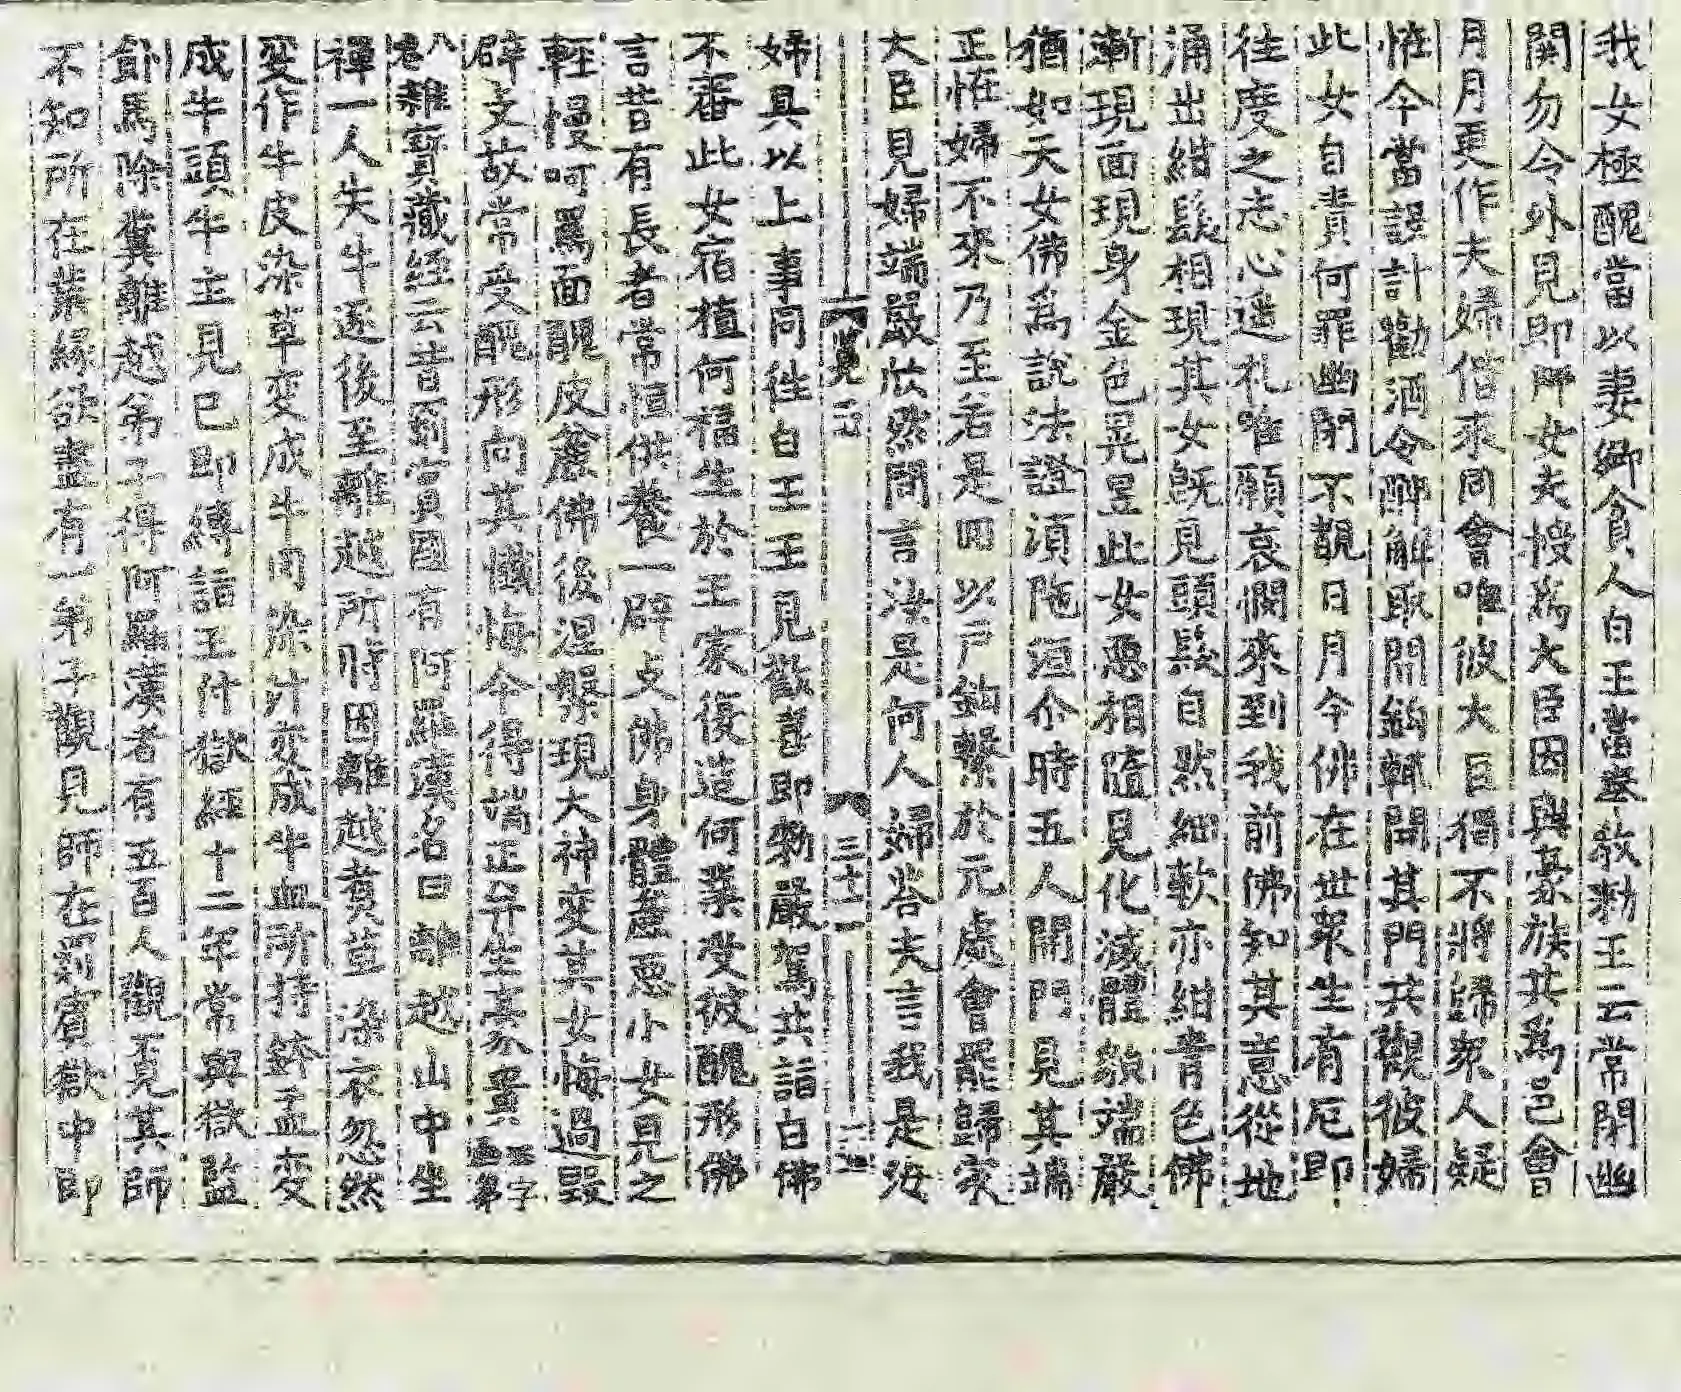 我女極醜當以妻卿貧人白王當奉敎勑王云常閉幽
関勿令外見即所女夫授爲大臣因與豪族共爲邑會
月月更作夫婦偕來同會唯彼大臣獨不將歸衆人疑
恠今當設計勸酒令醉解取開鉤輒開其門共觀彼婦
此女自責何罪幽閉不覩日月今佛在世衆生有厄即
往度之志心遥礼唯願哀愍來到我前佛知其意從地
涌出紺髮相現其女旣見頭髮自然細軟亦紺青色佛
漸現面現身金色晃昱此女惡相隨見化滅體貌端嚴
猶如天女佛爲說法證湏陁洹尒時五人開門見其端
正恠婦不來乃至若是四以戸鉤繫於元處會罷歸家
大臣見婦端嚴欣然問言汝是何人婦荅夫言我是汝
婦具以上事同徃白王王見歡喜即勑嚴駕共詣白佛
不審此女宿植何福生於王家復造何業受彼醜形佛
言昔有長者常恒供養一辟支佛身體麁惡小女見之
輕慢呵罵面醜皮麁佛後涅槃現大神變其女悔過毀
辟支故常受醜形向其懺悔今得端正并生豪貴
雜寳藏經云昔罽賓國有阿羅漢名曰離越山中坐
禪一人失牛逐後至離越所时因離越煑草染衣忽然
変作牛皮染草変成牛肉染汁変成牛血所持鉢盂変
成牛頭牛主見已即縛詣王付獄經十二年常與獄監
飼馬除糞離越弟子得阿羅漢者有五百人觀不見其師
不知所在業緣欲盡有一弟子觀見師在罽賓獄中即